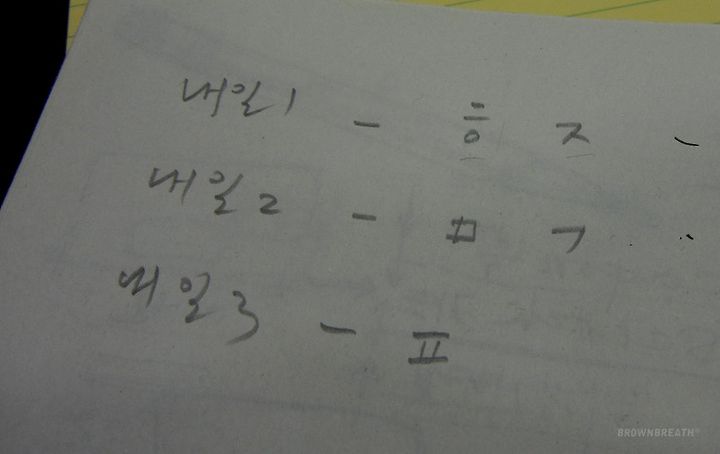 내일1 - ㅎ ㅈ
내일2 - ㅁ ㄱ
내일3 - ㅍ
BROWNBREATH®